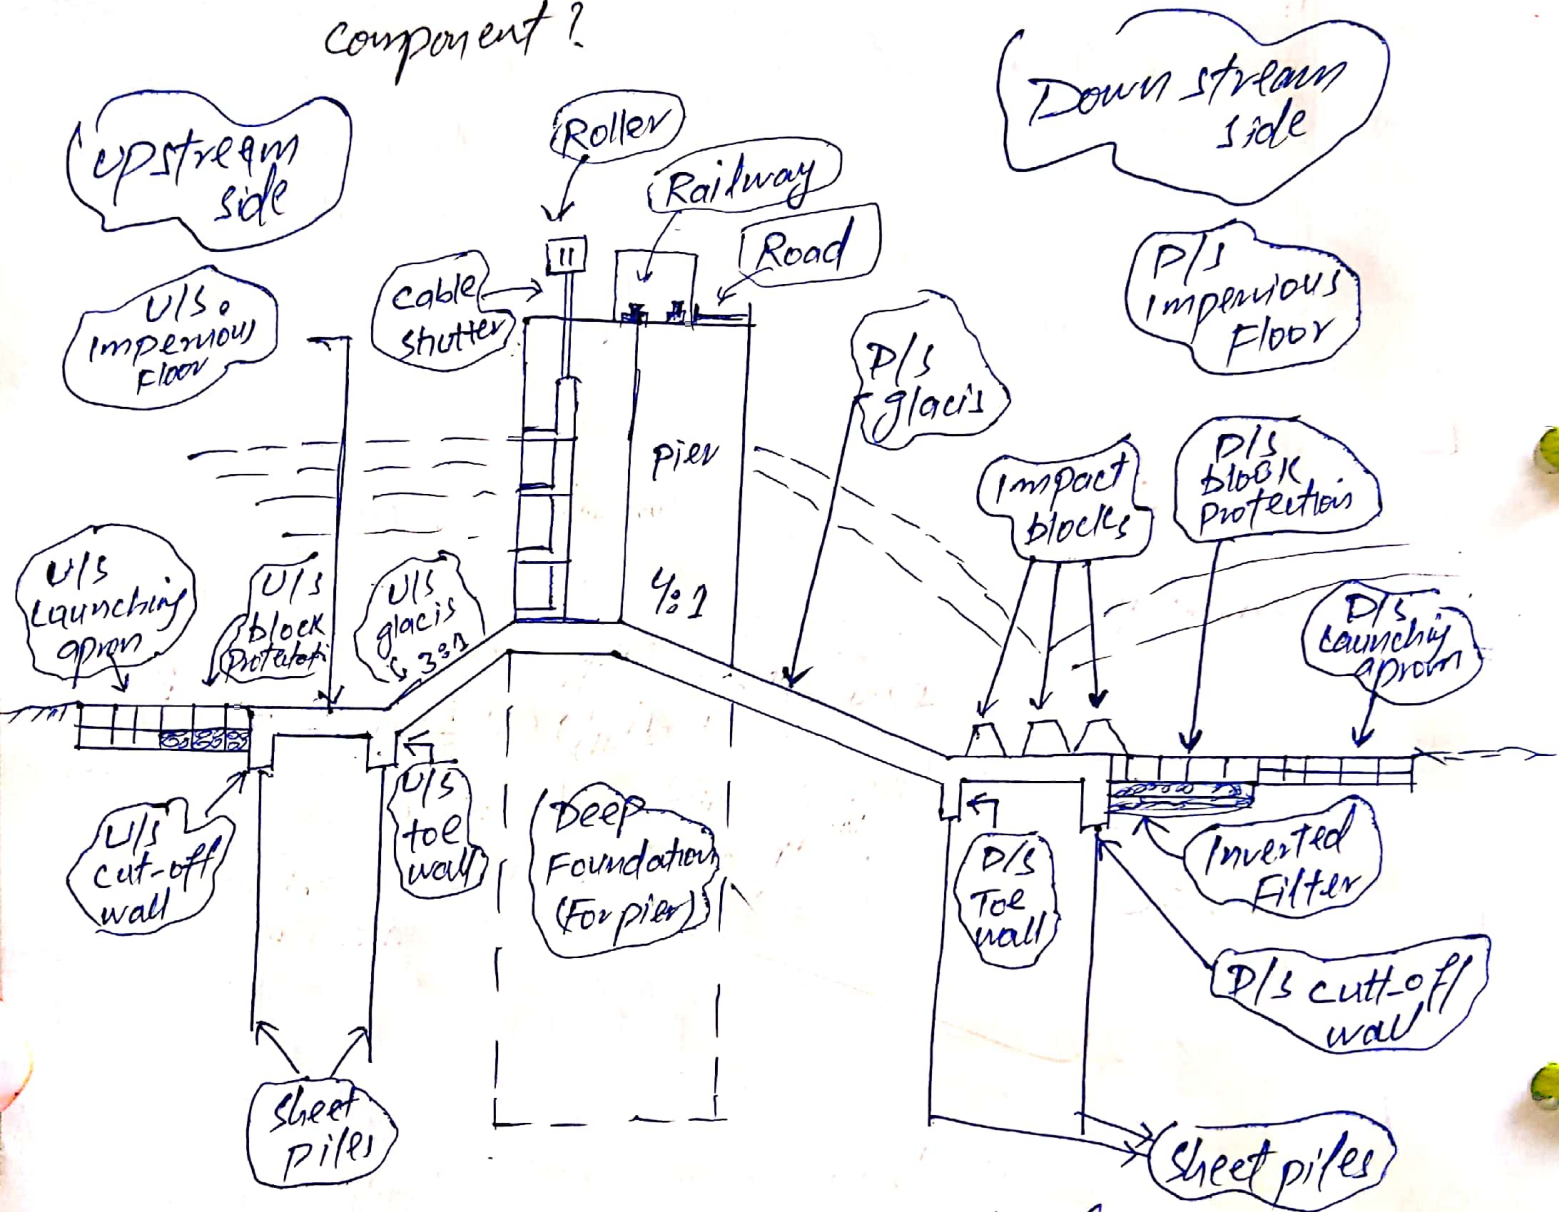 component?
Upstream
side
Down stream
side
Roller
Railway
Road
Cable
shutter
U/S.
impervious
Floor
D/S
impervious
Floor
D/S
glacis
pier
4:1
Impact
blocks
D/S
block
protection
U/S
Launching
apron
U/S
block
U/S
glacis
3:1
D/S
Launching
aprom
U/S
cut-off
wall
U/S
toe
wall
Deep
Foundation
(For pier)
D/S
Toe
wall
Inverted
Filter
D/S cutt-off
wall
Sheet
piles
Sheet piles